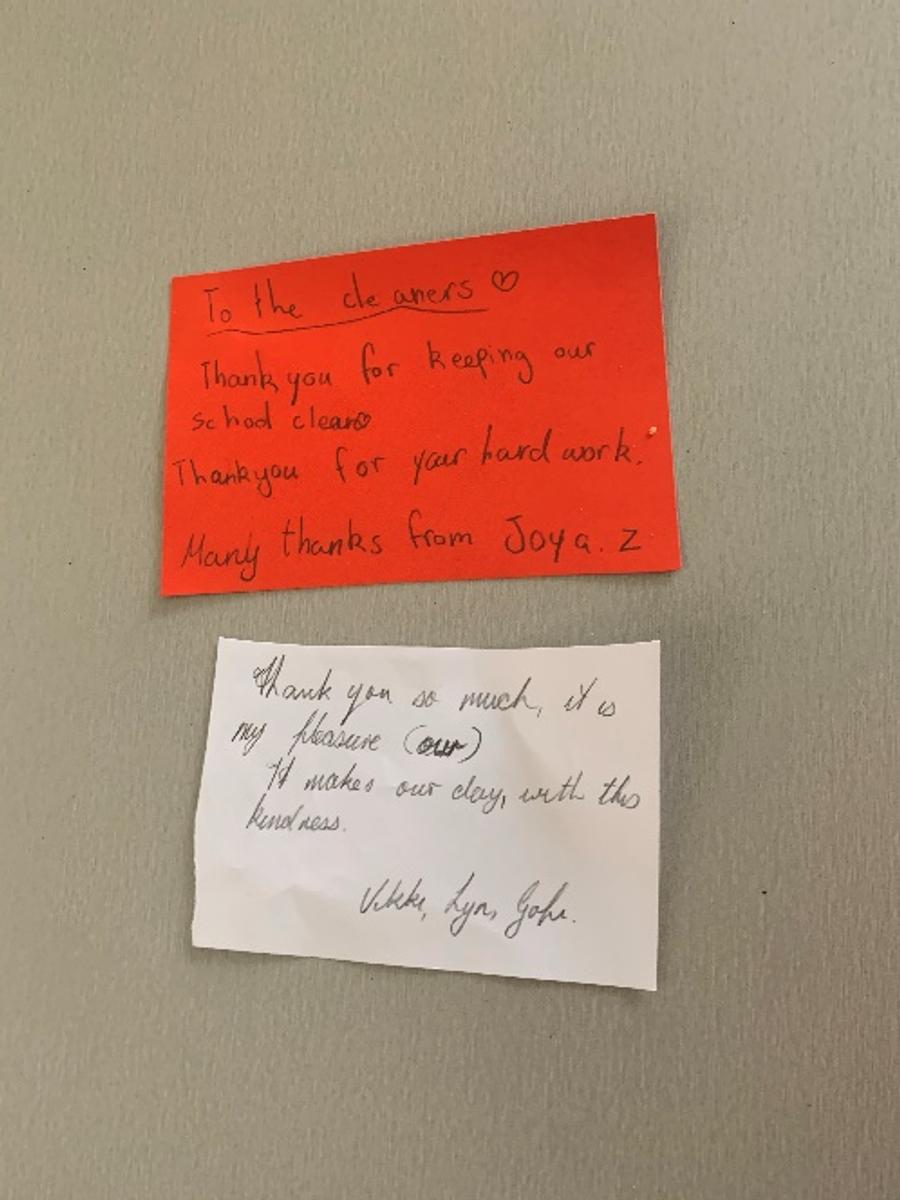 To the cleaners ♡
Thank you for keeping our
school clean♡
Thankyou for your hard work.
Many thanks from Joya. Z
Thank you so much, it is
my pleasure (our)
It makes our day, with this
kindness.
Vikki, Lyn,